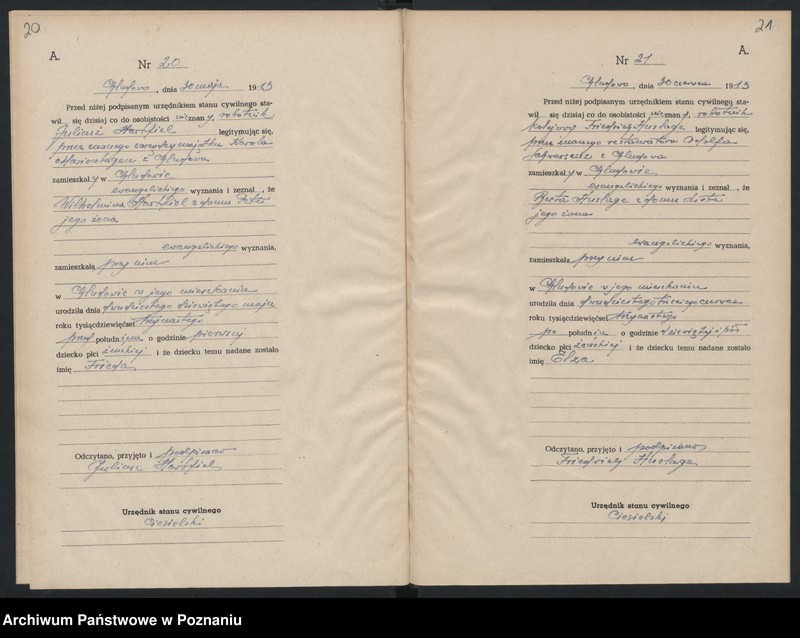 20
A.
Nr 20
, dnia 30 maja 1913
Przed niżej podpisanym urzędnikiem stanu cywilnego sta-
wił się dzisiaj co do osobistości nieznany, robotnik
Juliusz legitymując się,
przez znanego Karola
z
zamieszkały w
ewangelickiego wyznania i zeznał, że
Wilhelmina z domu
jego żona
ewangelickiego wyznania,
zamieszkała przy nim
w w jego mieszkaniu
urodziła dnia dwudziestego dziewiątego maja
roku tysiącdziewięćset trzynastego
przed południem o godzinie pierwszej
dziecko płci żeńskiej i że dziecku temu nadane zostało
imię Frieda
Odczytano, przyjęto i podpisano
Juliusz
Urzędnik stanu cywilnego
Ciesielski
21
A.
Nr 21
, dnia 30 czerwca 1913
Przed niżej podpisanym urzędnikiem stanu cywilnego sta-
wił się dzisiaj co do osobistości nieznany, robotnik
kolejowy Friedrich legitymując się,
przez znanego Adolfa
z
zamieszkały w
ewangelickiego wyznania i zeznał, że
Berta z domu
jego żona
ewangelickiego wyznania,
zamieszkała przy nim
w w jego mieszkaniu
urodziła dnia dwudziestego trzeciego czerwca
roku tysiącdziewięćset trzynastego
po południu o godzinie dziewiątej i pół
dziecko płci żeńskiej i że dziecku temu nadane zostało
imię Elza
Odczytano, przyjęto i podpisano
Friedrich
Urzędnik stanu cywilnego
Ciesielski
Archiwum Państwowe w Poznaniu